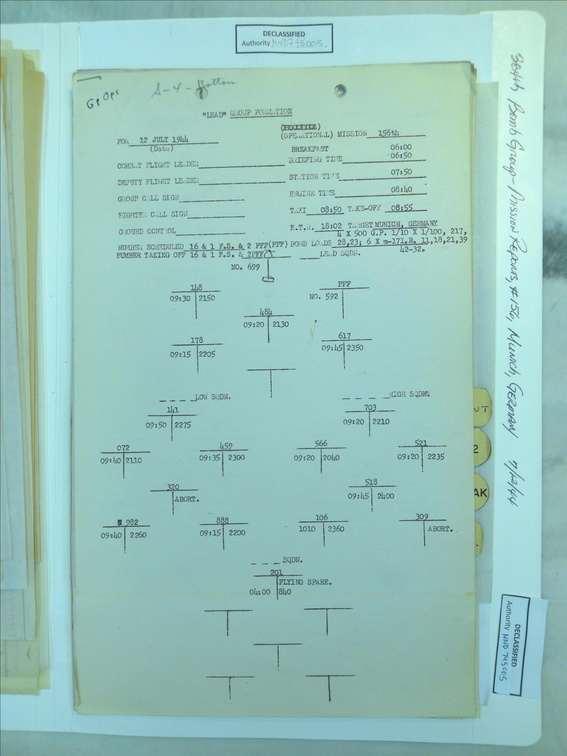 DECLASSIFIED
Authority NND 745005
Gp Ops
S-4 - Bottom
"LEAD" GROUP FORMATION
(PRACTICE)
FOR 12 JULY 1944 (OPERATIONAL) MISSION 156th
(Date)
BREAKFAST 06:00
COMBAT FLIGHT LEADER BRIEFING TIME 06:50
DEPUTY FLIGHT LEADER STATION TIME 07:50
GROUP CALL SIGN ENGINE TIME 08:40
FIGHTER CALL SIGN TAXI 08:50 TAKE-OFF 08:55
GROUND CONTROL E.T.R. 18:02 TARGET MUNICH, GERMANY
4 X 500 G.P. 1/10 X 1/100, 217,
NUMBER SCHEDULED 16 & 1 F.S. & 2 PFF(PFF) BOMB LOADS 28,23; 6 X m-17I.B. 11,18,21,39
NUMBER TAKING OFF 16 & 1 F.S. & 2PFF LEAD SQDN. 42-32.
NO. 699
148 PFF
09:30 2150 NO. 592
484
09:20 2130
178 617
09:15 2205 09:45 2350
LOW SQDN. HIGH SQDN.
141 703
09:50 2275 09:20 2210
072 459 566 521
09:40 2110 09:35 2300 09:20 2040 09:20 2235
320 518
ABORT. 09:45 2400
982 888 106 309
09:40 2260 09:15 2200 1010 2360 ABORT.
SQDN.
201
FLYING SPARE.
04:00 840
384th Bomb Group - Mission Reports, #156, Munich, Germany 7/12/44
2
AK
DECLASSIFIED
Authority NND 745005